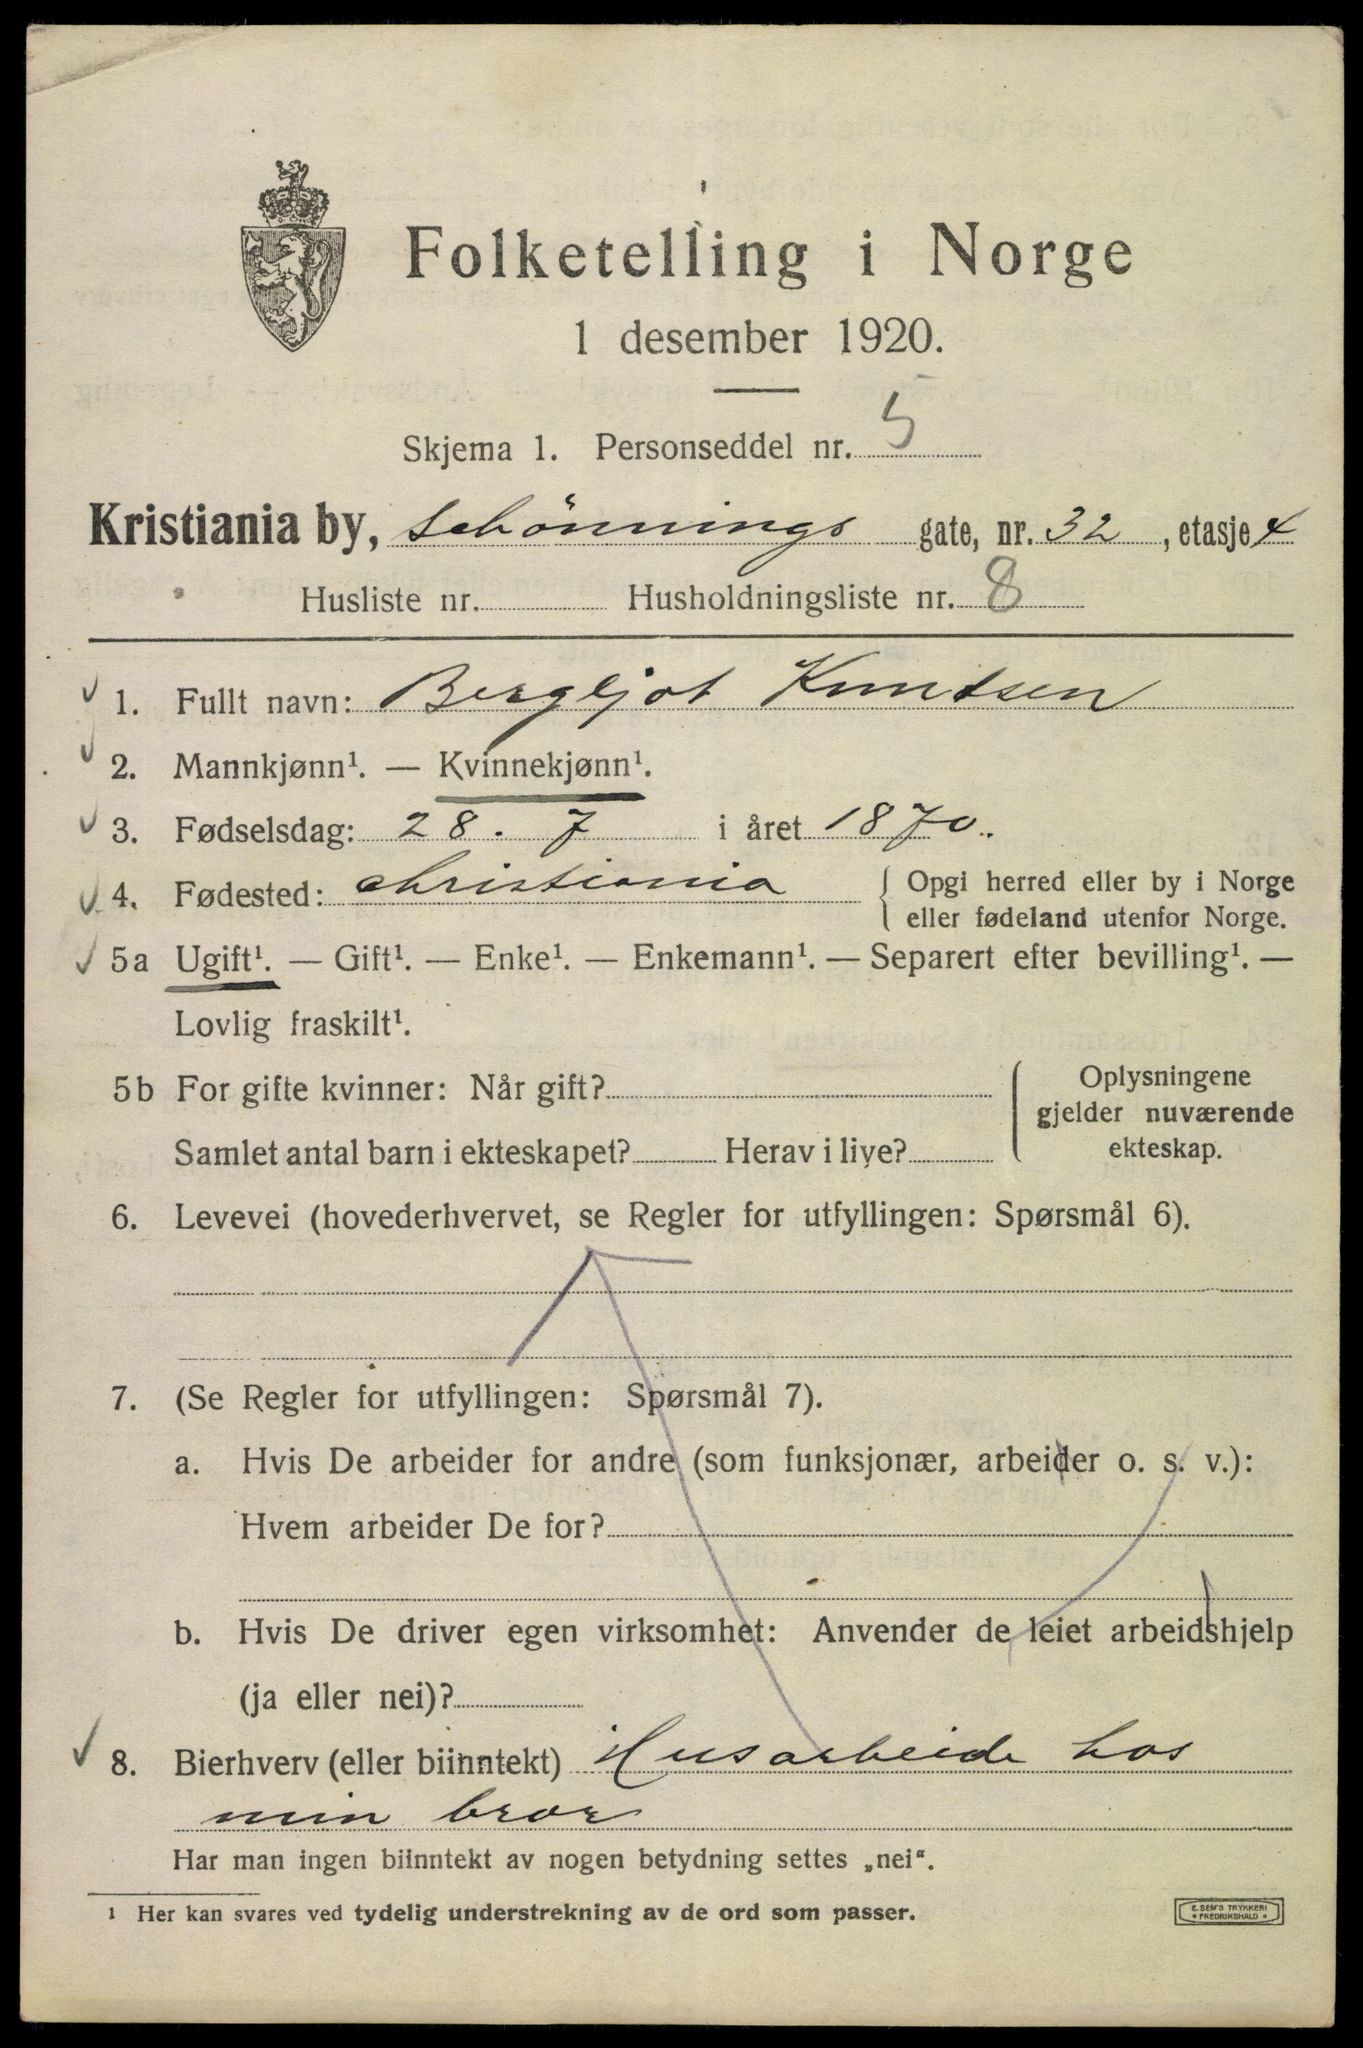 Folketelling i Norge
1 desember 1920.
Skjema 1. Personseddel nr. 5
Kristiania by, Schönnings gate, nr. 32, etasje 4
Husliste nr. Husholdningsliste nr. 8
1. Fullt navn: Bergljot Knudsen
2. Mannkjønn¹. — Kvinnekjønn¹.
3. Fødselsdag: 28. 7 i året 1870.
4. Fødested: Christiania { Opgi herred eller by i Norge
eller fødeland utenfor Norge.
5a Ugift¹. — Gift¹. — Enke¹. — Enkemann¹. — Separert efter bevilling¹. —
Lovlig fraskilt¹.
5b For gifte kvinner: Når gift? { Oplysningene
gjelder nuværende
Samlet antal barn i ekteskapet? Herav i live? ekteskap.
6. Levevei (hovederhvervet, se Regler for utfyllingen: Spørsmål 6).
7. (Se Regler for utfyllingen: Spørsmål 7).
a. Hvis De arbeider for andre (som funksjonær, arbeider o. s. v.):
Hvem arbeider De for?
b. Hvis De driver egen virksomhet: Anvender de leiet arbeidshjelp
(ja eller nei)?
8. Bierhverv (eller biinntekt) Husarbeide hos
min bror
Har man ingen biinntekt av nogen betydning settes „nei“.
¹ Her kan svares ved tydelig understrekning av de ord som passer.
E. SEM'S TRYKKERI
• FREDRIKSHALD •